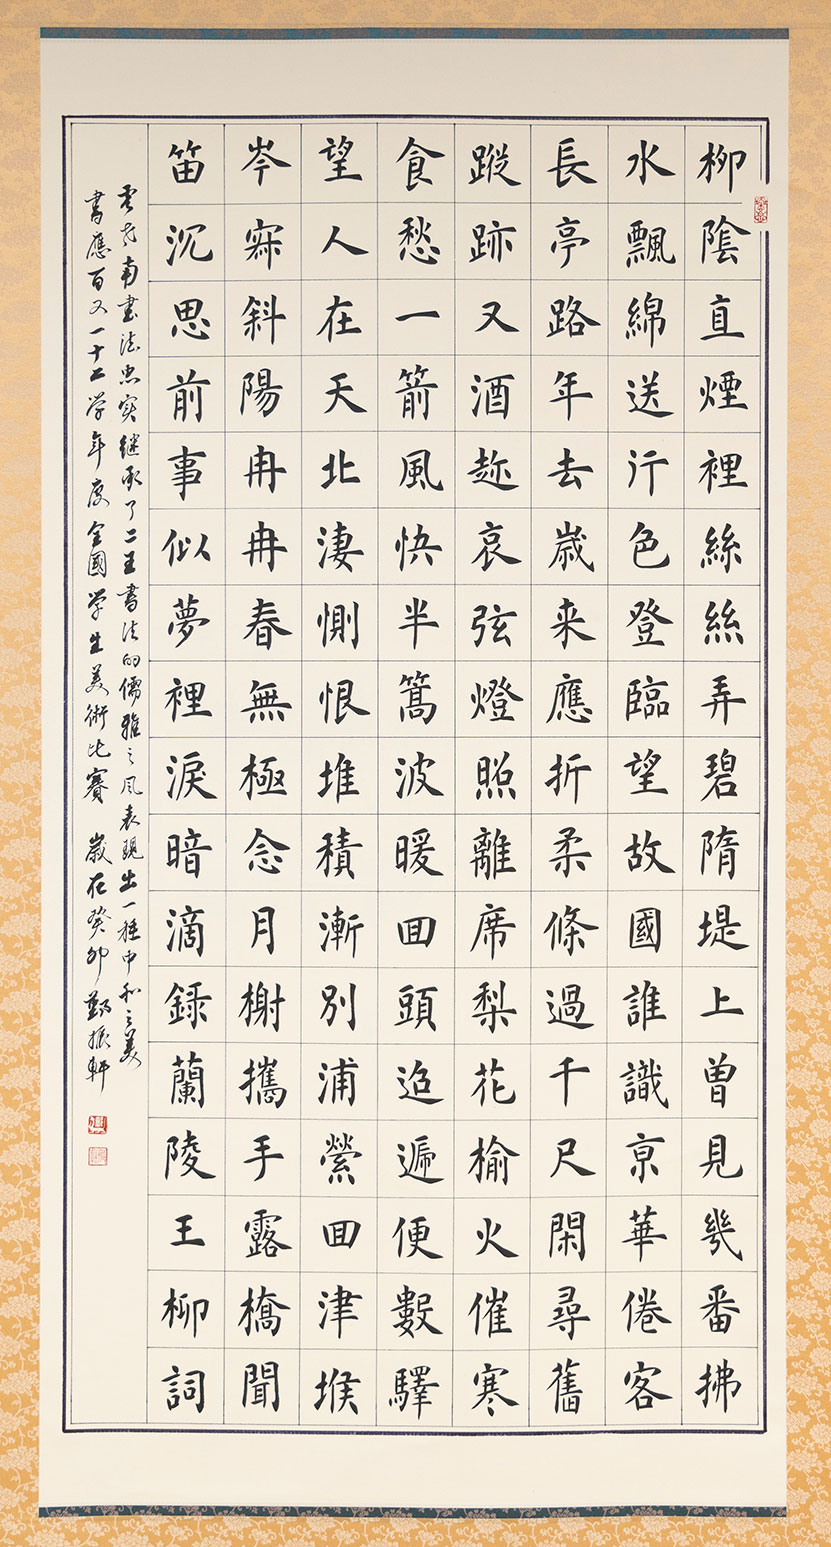 柳陰直煙裡絲絲弄碧隋堤上曾見幾番拂
水飄綿送行色登臨望故國誰識京華倦客
長亭路年去歲来應折柔條過千尺閑尋舊
蹤跡又酒趂哀弦燈照離席梨花榆火催寒
食愁一箭風快半篙波暖回頭迢遞便數驛
望人在天北淒惻恨堆積漸別浦縈回津堠
岑寂斜陽冉冉春無極念月榭攜手露橋聞
笛沉思前事似夢裡淚暗滴錄蘭陵王柳詞
虞世南書法忠实继承了二王書法的儒雅之風表現出一種中和之美
書應百又一十二学年度全國学生美術比賽 歲在癸卯 振軒